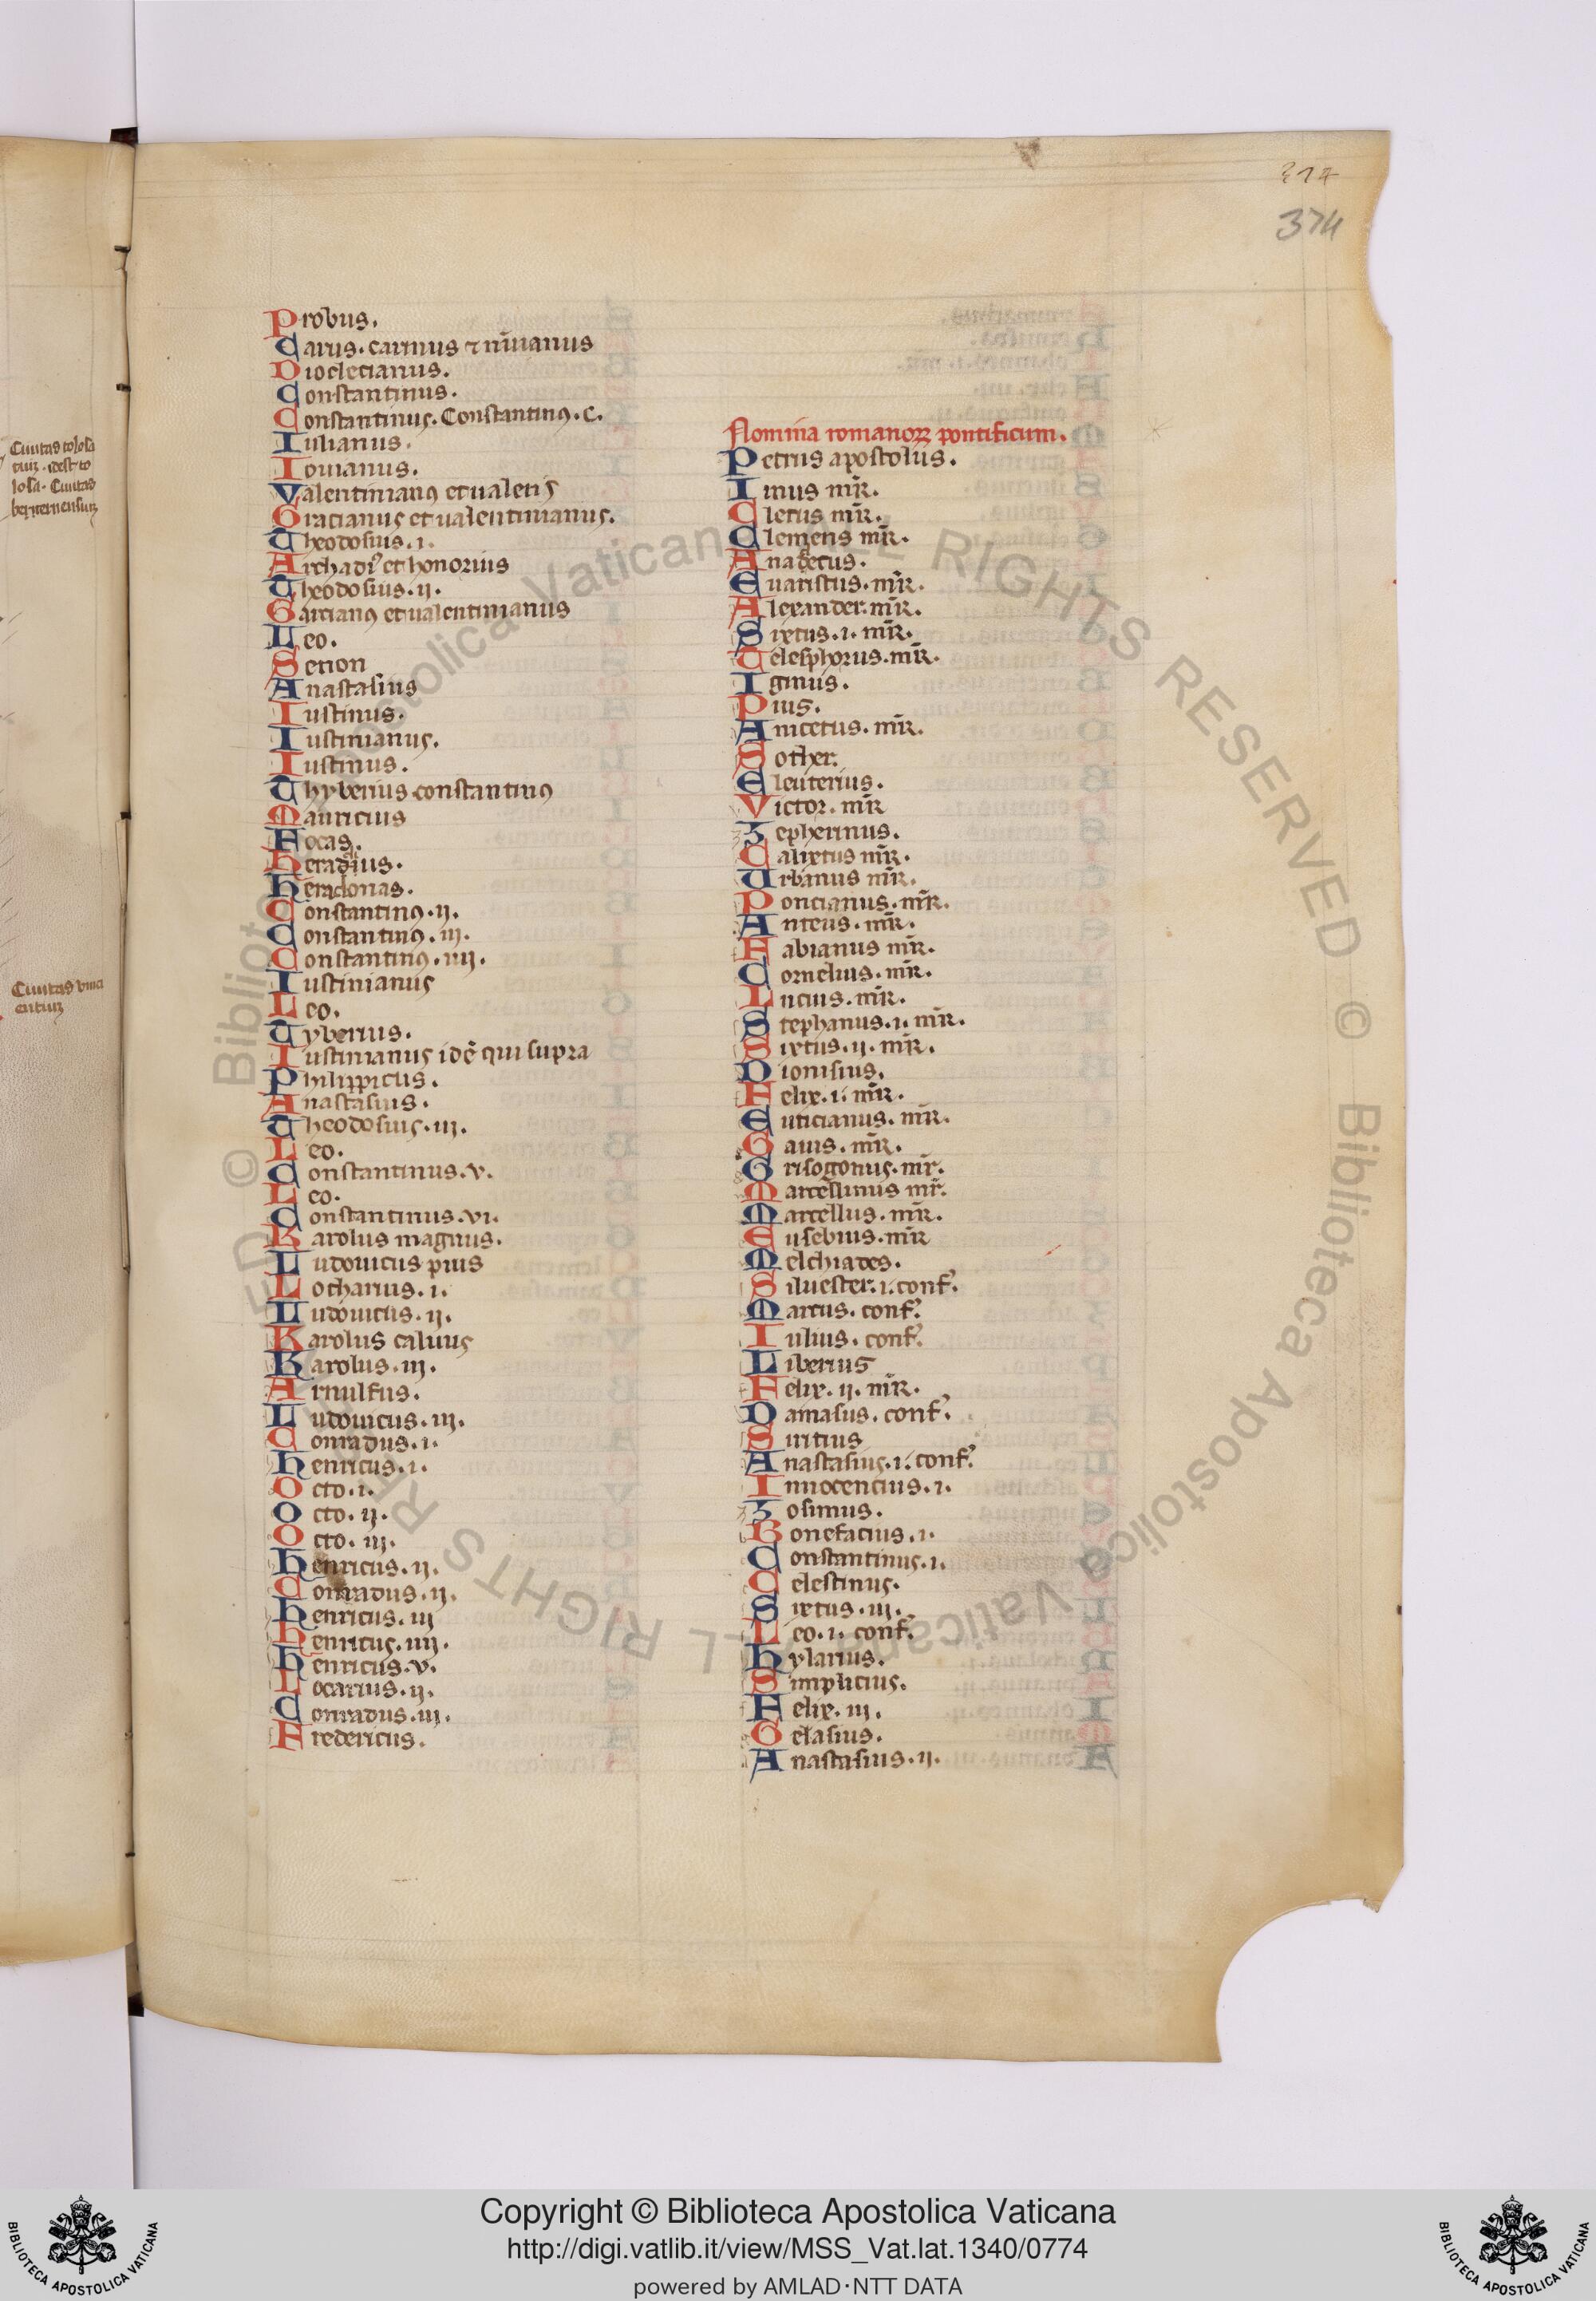 374
Ciuitas tolosa
tolosa. Ciuitas
Probus.
Carus. carinus ⁊ nūianus
Dioclecianus.
Constantinus.
Constantinus. Constantinꝰ. c.
Iulianus.
Iouianus.
Valentinianꝰ et ualens
Gracianus et ualentinianus.
Theodosius. i.
Archadiꝰ et honorius
Theodosius. ii.
Garcianꝰ et ualentinianus
Leo.
Senon
Anastasius
Iustinus.
Iustinianus.
Iustinus.
Thyberius constantinꝰ
Mauricius
Focas.
Heraclius.
Heraclonas.
Constantinꝰ. ii.
Constantinꝰ. iii.
Constantinꝰ. iiii.
Iustinianus
Leo.
Tyberius.
Iustinianus idē qui supra
Philippicus.
Anastasius.
Theodosius. iii.
Leo.
Constantinus. v.
Leo.
Constantinus. vi.
Karolus magnus.
Ludouicus pius
Lotharius. i.
Ludouicus. ii.
Karolus caluus
Karolus. iii.
Arnulfus.
Ludouicus. iii.
Conradus. i.
Henricus. i.
Octo. i.
Octo. ii.
Octo. iii.
Henricus. ii.
Conradus. ii.
Henricus. iii
Henricus. iiii.
Henricus. v.
Locarius. ii.
Conradus. iii.
Fredericus.
Nomina romanoꝝ pontificum.
Petrus apostolus.
Linus mr̄.
Cletus mr̄.
Clemens mr̄.
Anacletus.
Euaristus. mr̄.
Alexander. mr̄.
Sixtus. i. mr̄.
Telesphorus. mr̄.
Iginus.
Pius.
Anicetus. mr̄.
Sother.
Eleuterius.
Victor. mr̄
Zepherinus.
Calixtus mr̄.
Urbanus mr̄.
Poncianus. mr̄.
Anteus. mr̄.
Fabianus mr̄.
Cornelius. mr̄.
Lucius. mr̄.
Stephanus. i. mr̄.
Sixtus. ii. mr̄.
Dionisius.
Felix. i. mr̄.
Euticianus. mr̄.
Gaius. mr̄.
Grisogonus. mr̄.
Marcellinus mr̄.
Marcellus. mr̄.
Eusebius. mr̄
Melchiades.
Siluester. i. conf̉.
Marcus. conf̉.
Iulius. conf̉.
Liberius
Felix. ii. mr̄.
Damasus. conf̉.
Siricius
Anastasius. i. conf̉.
Innocencius. i.
Zosimus.
Bonefacius. i.
Constantinus. i.
Celestinus.
Sixtus. iii.
Leo. i. conf̉.
Hylarius.
Simplicius.
Felix. iii.
Gelasius.
Anastasius. ii.
Copyright © Biblioteca Apostolica Vaticana
http://digi.vatlib.it/view/MSS_Vat.lat.1340/0774
powered by AMLAD·NTT DATA
BIBLIOTECA APOSTOLICA VATICANA
BIBLIOTECA APOSTOLICA VATICANA